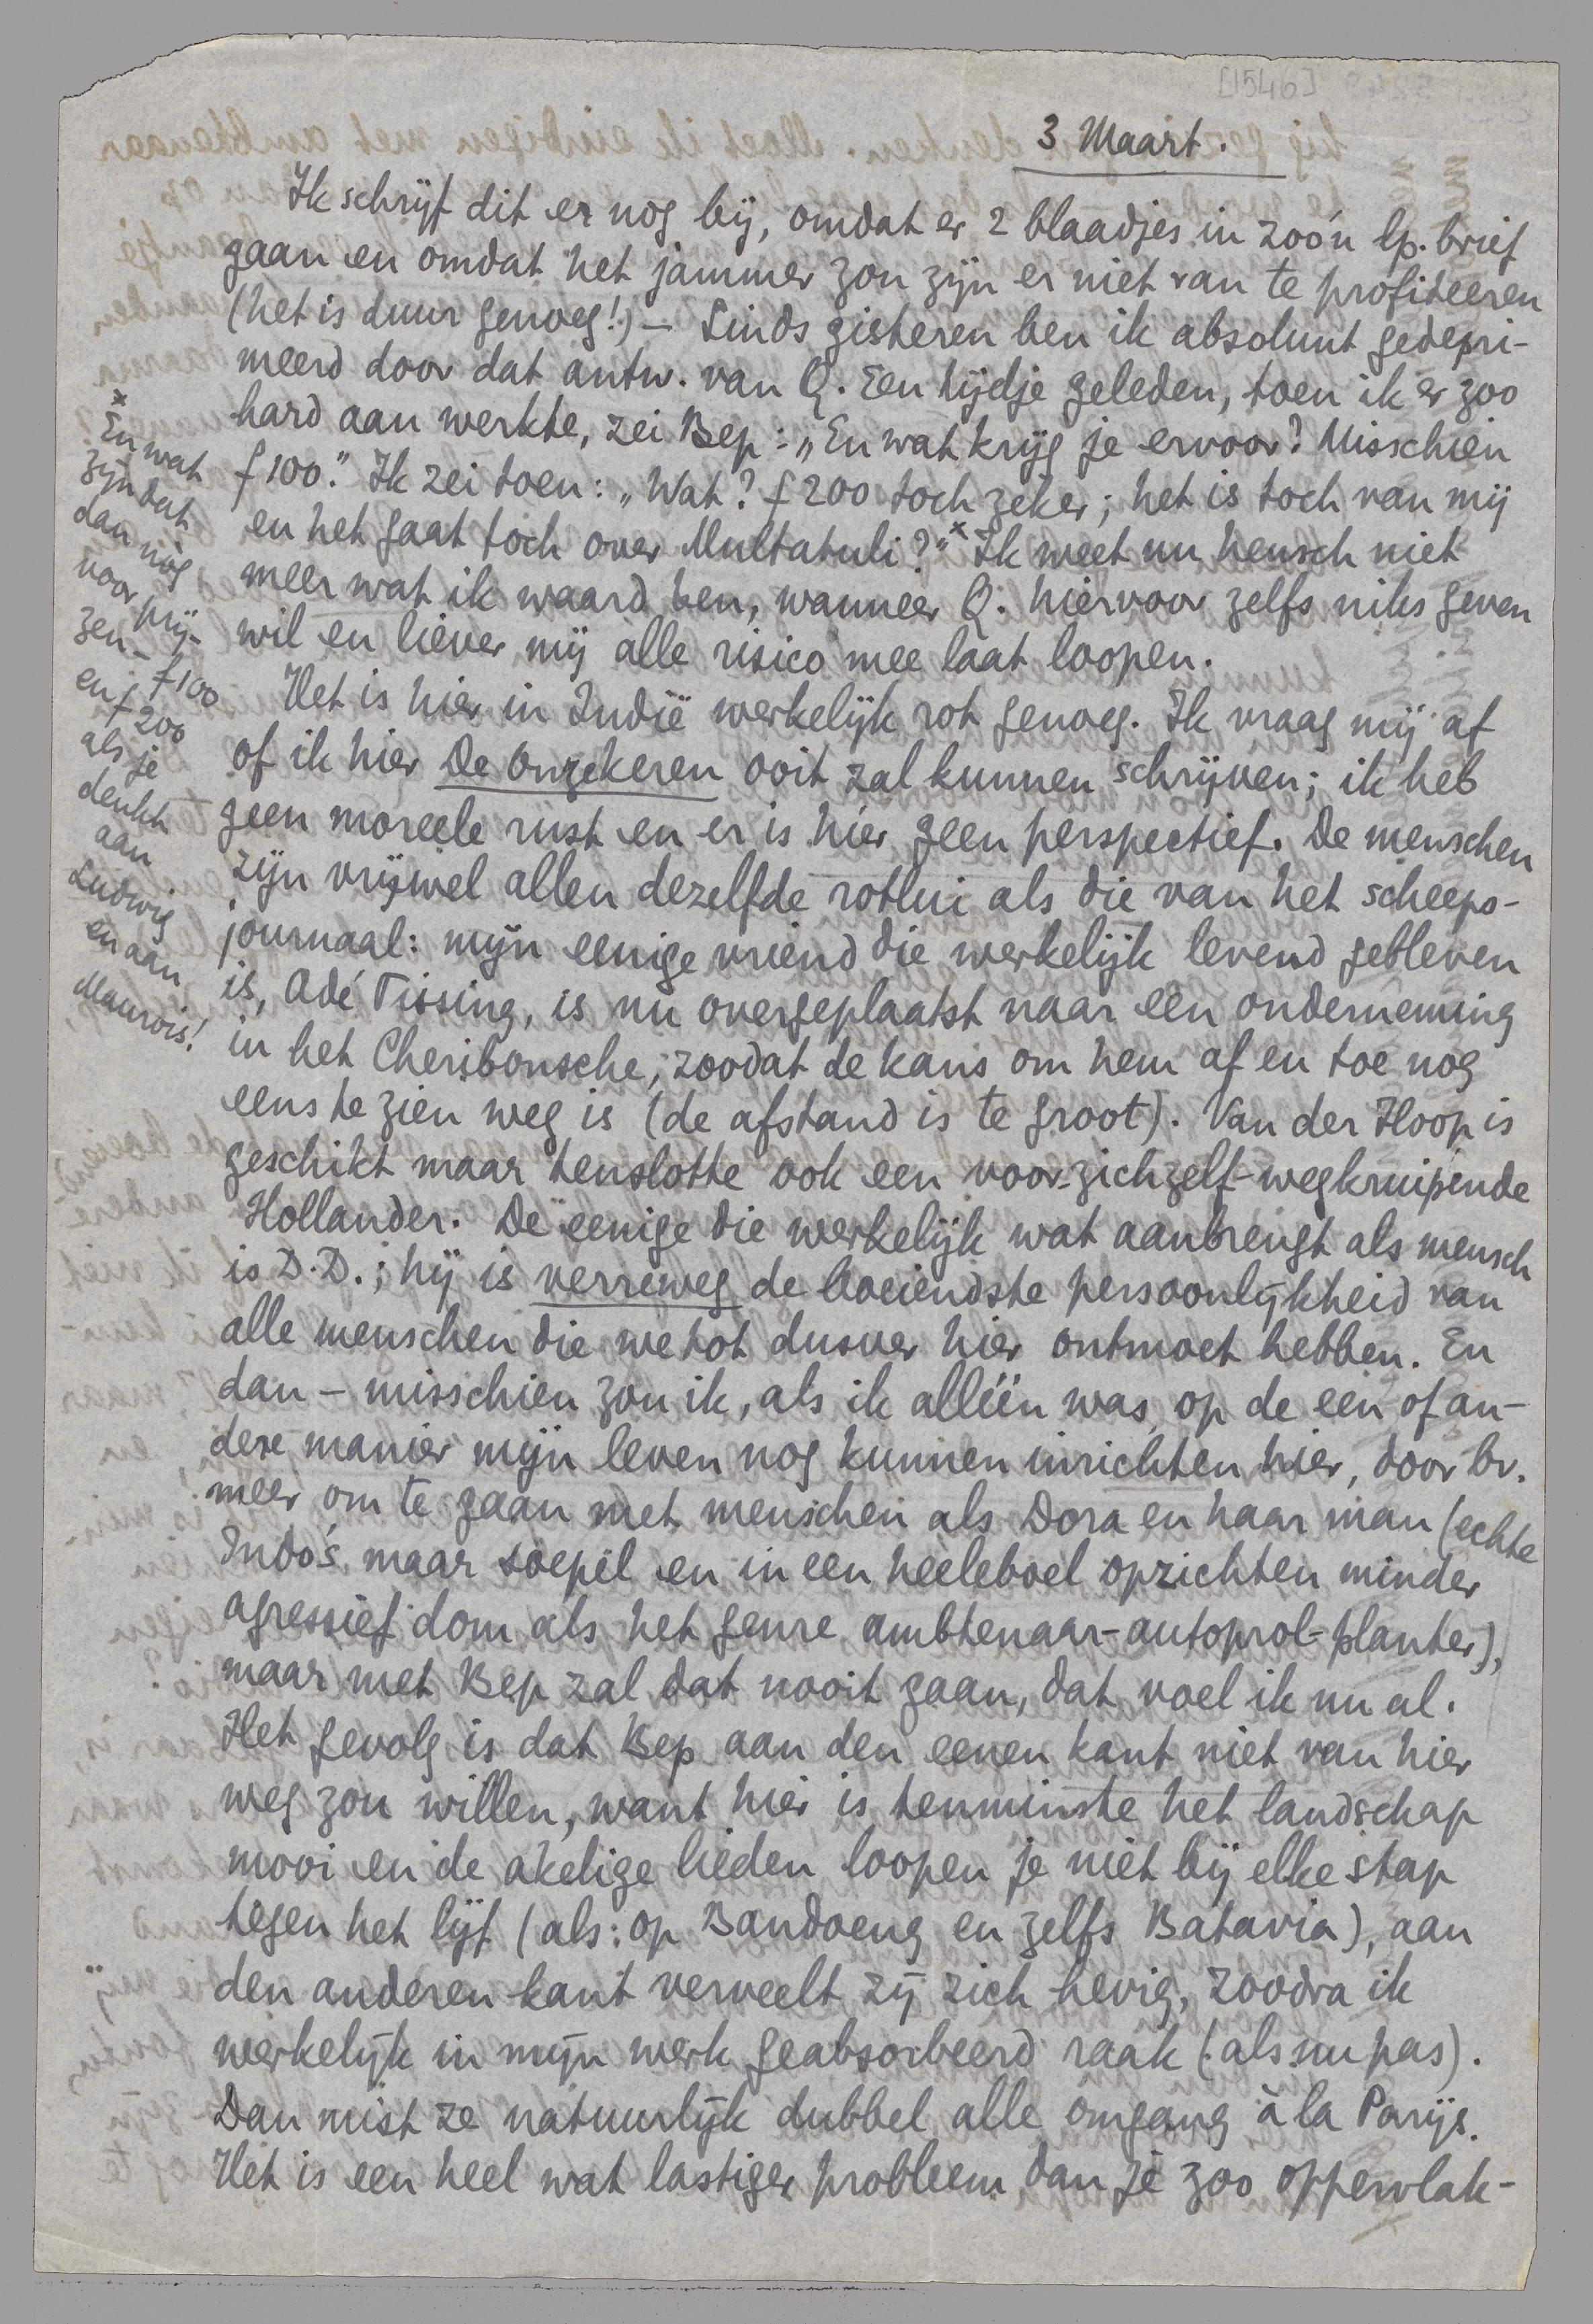 [1546]
3 Maart.
Ik schrijf dit er nog bij, omdat er 2 blaadjes in zoo'n lp. brief
gaan en omdat het jammer zou zijn er niet van te profiteeren
(het is duur genoeg!) – Sinds gisteren ben ik absoluut gedepri-
meerd door dat antw. van Q. Een tijdje geleden, toen ik er zoo
hard aan werkte, zei Bep: „En wat krijg je ervoor? Misschien
f 100." Ik zei toen: „Wat? f 200 toch zeker; het is toch van mij
en het gaat toch over Multatuli?"x Ik weet nu heusch niet
meer wat ik waard ben, wanneer Q. hiervoor zelfs niks geven
wil en liever mij alle risico mee laat loopen.
Het is hier in Indië werkelijk rot genoeg. Ik vraag mij af
of ik hier De Onzekeren ooit zal kunnen schrijven; ik heb
geen moreele rust en er is hier geen perspectief. De menschen
zijn vrijwel allen dezelfde rotlui als die van het scheeps-
journaal: mijn eenige vriend die werkelijk levend gebleven
is, Adé Tissing, is nu overgeplaatst naar een onderneming
in het Cheribonsche, zoodat de kans om hem af en toe nog
eens te zien weg is (de afstand is te groot). Van der Hoop is
geschikt maar tenslotte ook een voor-zichzelf-wegkruipende
Hollander. De eenige die werkelijk wat aanbrengt als mensch
is D.D.; hij is verreweg de boeiendste persoonlijkheid van
alle menschen die we tot dusver hier ontmoet hebben. En
dan – misschien zou ik, als ik alléén was, op de een of an-
dere manier mijn leven nog kunnen inrichten hier, door bv.
meer om te gaan met menschen als Dora en haar man (echte
Indo's maar soepel en in een heeleboel opzichten minder
agressief dom als het genre ambtenaar-autoprol-planter),
maar met Bep zal dat nooit gaan, dat voel ik nu al.
Het gevolg is dat Bep aan den eenen kant niet van hier
weg zou willen, want hier is tenminste het landschap
mooi en de akelige lieden loopen je niet bij elke stap
tegen het lijf (als: op Bandoeng en zelfs Batavia), aan
den anderen kant verveelt zij zich hevig, zoodra ik
werkelijk in mijn werk geabsorbeerd raak (als nu pas).
Dan mist ze natuurlijk dubbel alle omgang à la Parijs.
Het is een heel wat lastiger probleem dan je zoo oppervlak-
x
En wat
zijn dat
dan nòg
voor prij-
zen –
f 100
en f 200
als je
denkt
aan
Ludwig
en aan
Maurois!